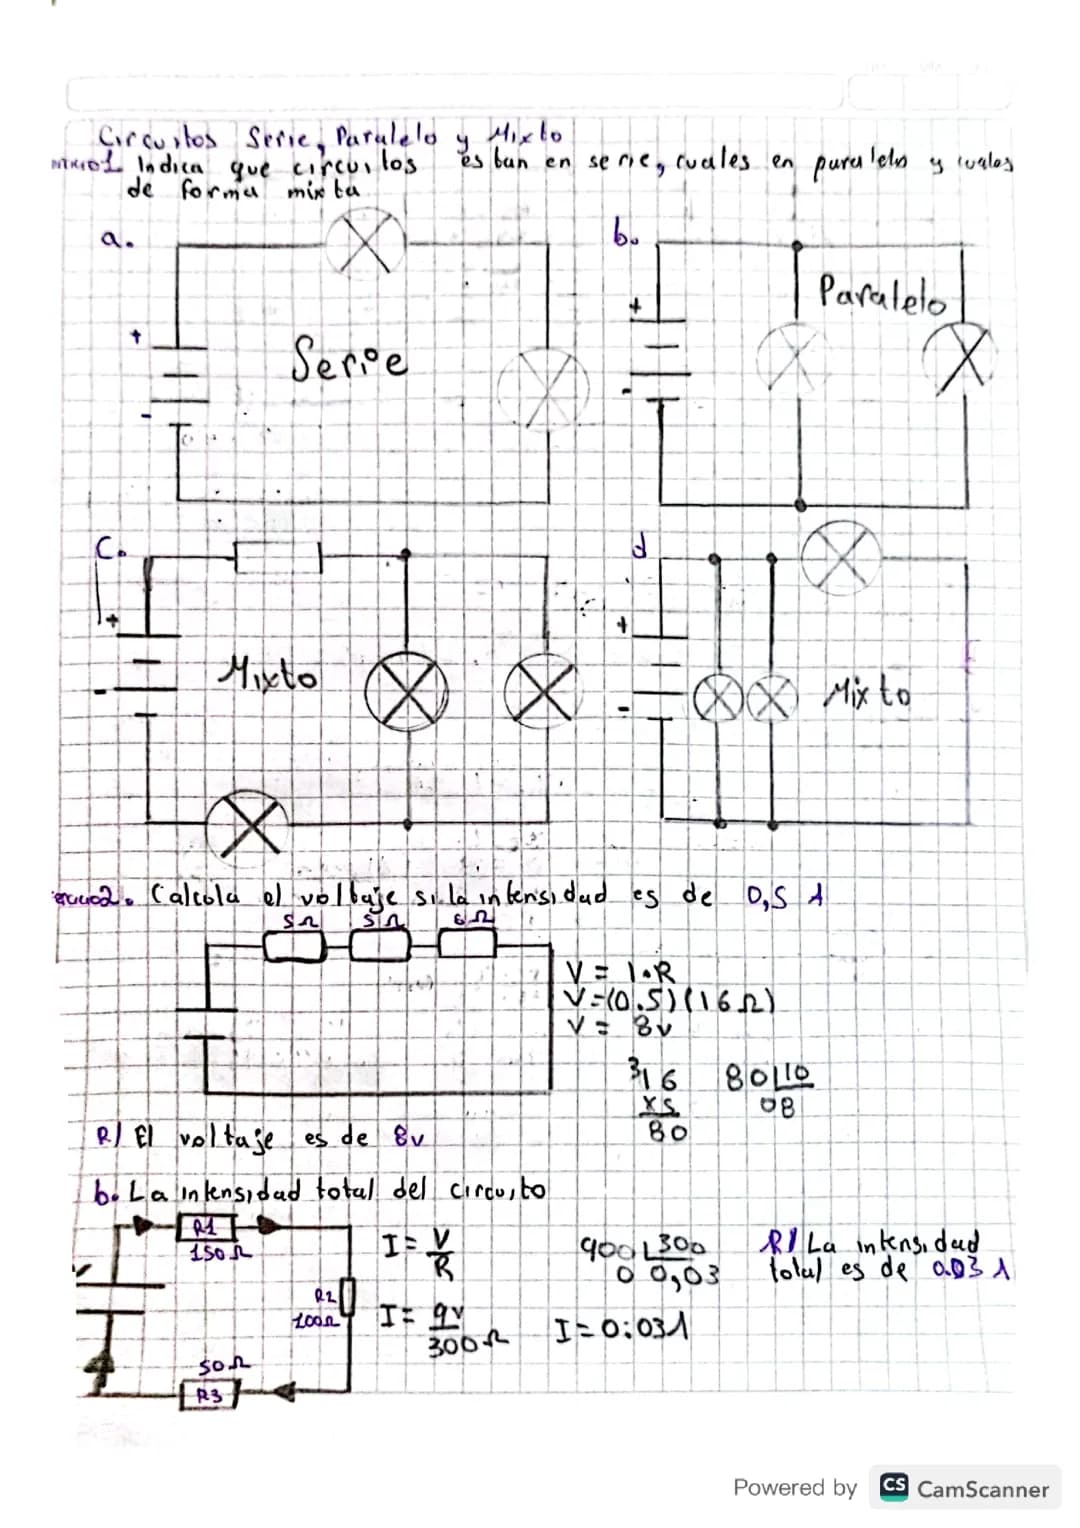 Circuitos Serie, Paralelo y Mixto
Indica que circuitos estan en serie, cuales en paralelo y cuales
de forma mixta
a.
b.
+
-
Serie
+
-
Paralelo
c.
d
+
-
Mixto
+
-
Mixto
Calcula el voltaje si la intensidad es de 0,5 A
5Ω 5Ω 6Ω
V = I•R
V=(0.5)(16Ω)
V = 8v
³16
x5
80
80 10
08
R/ El voltaje es de 8v
b. La intensidad total del circuito
R1
150Ω
R2
100Ω
50Ω
R3
I = V
R
I = 9v
300Ω
900 300
0 0,03
I=0.03A
R/ La intensidad
total es de 0.03 A
Powered by CS CamScanner